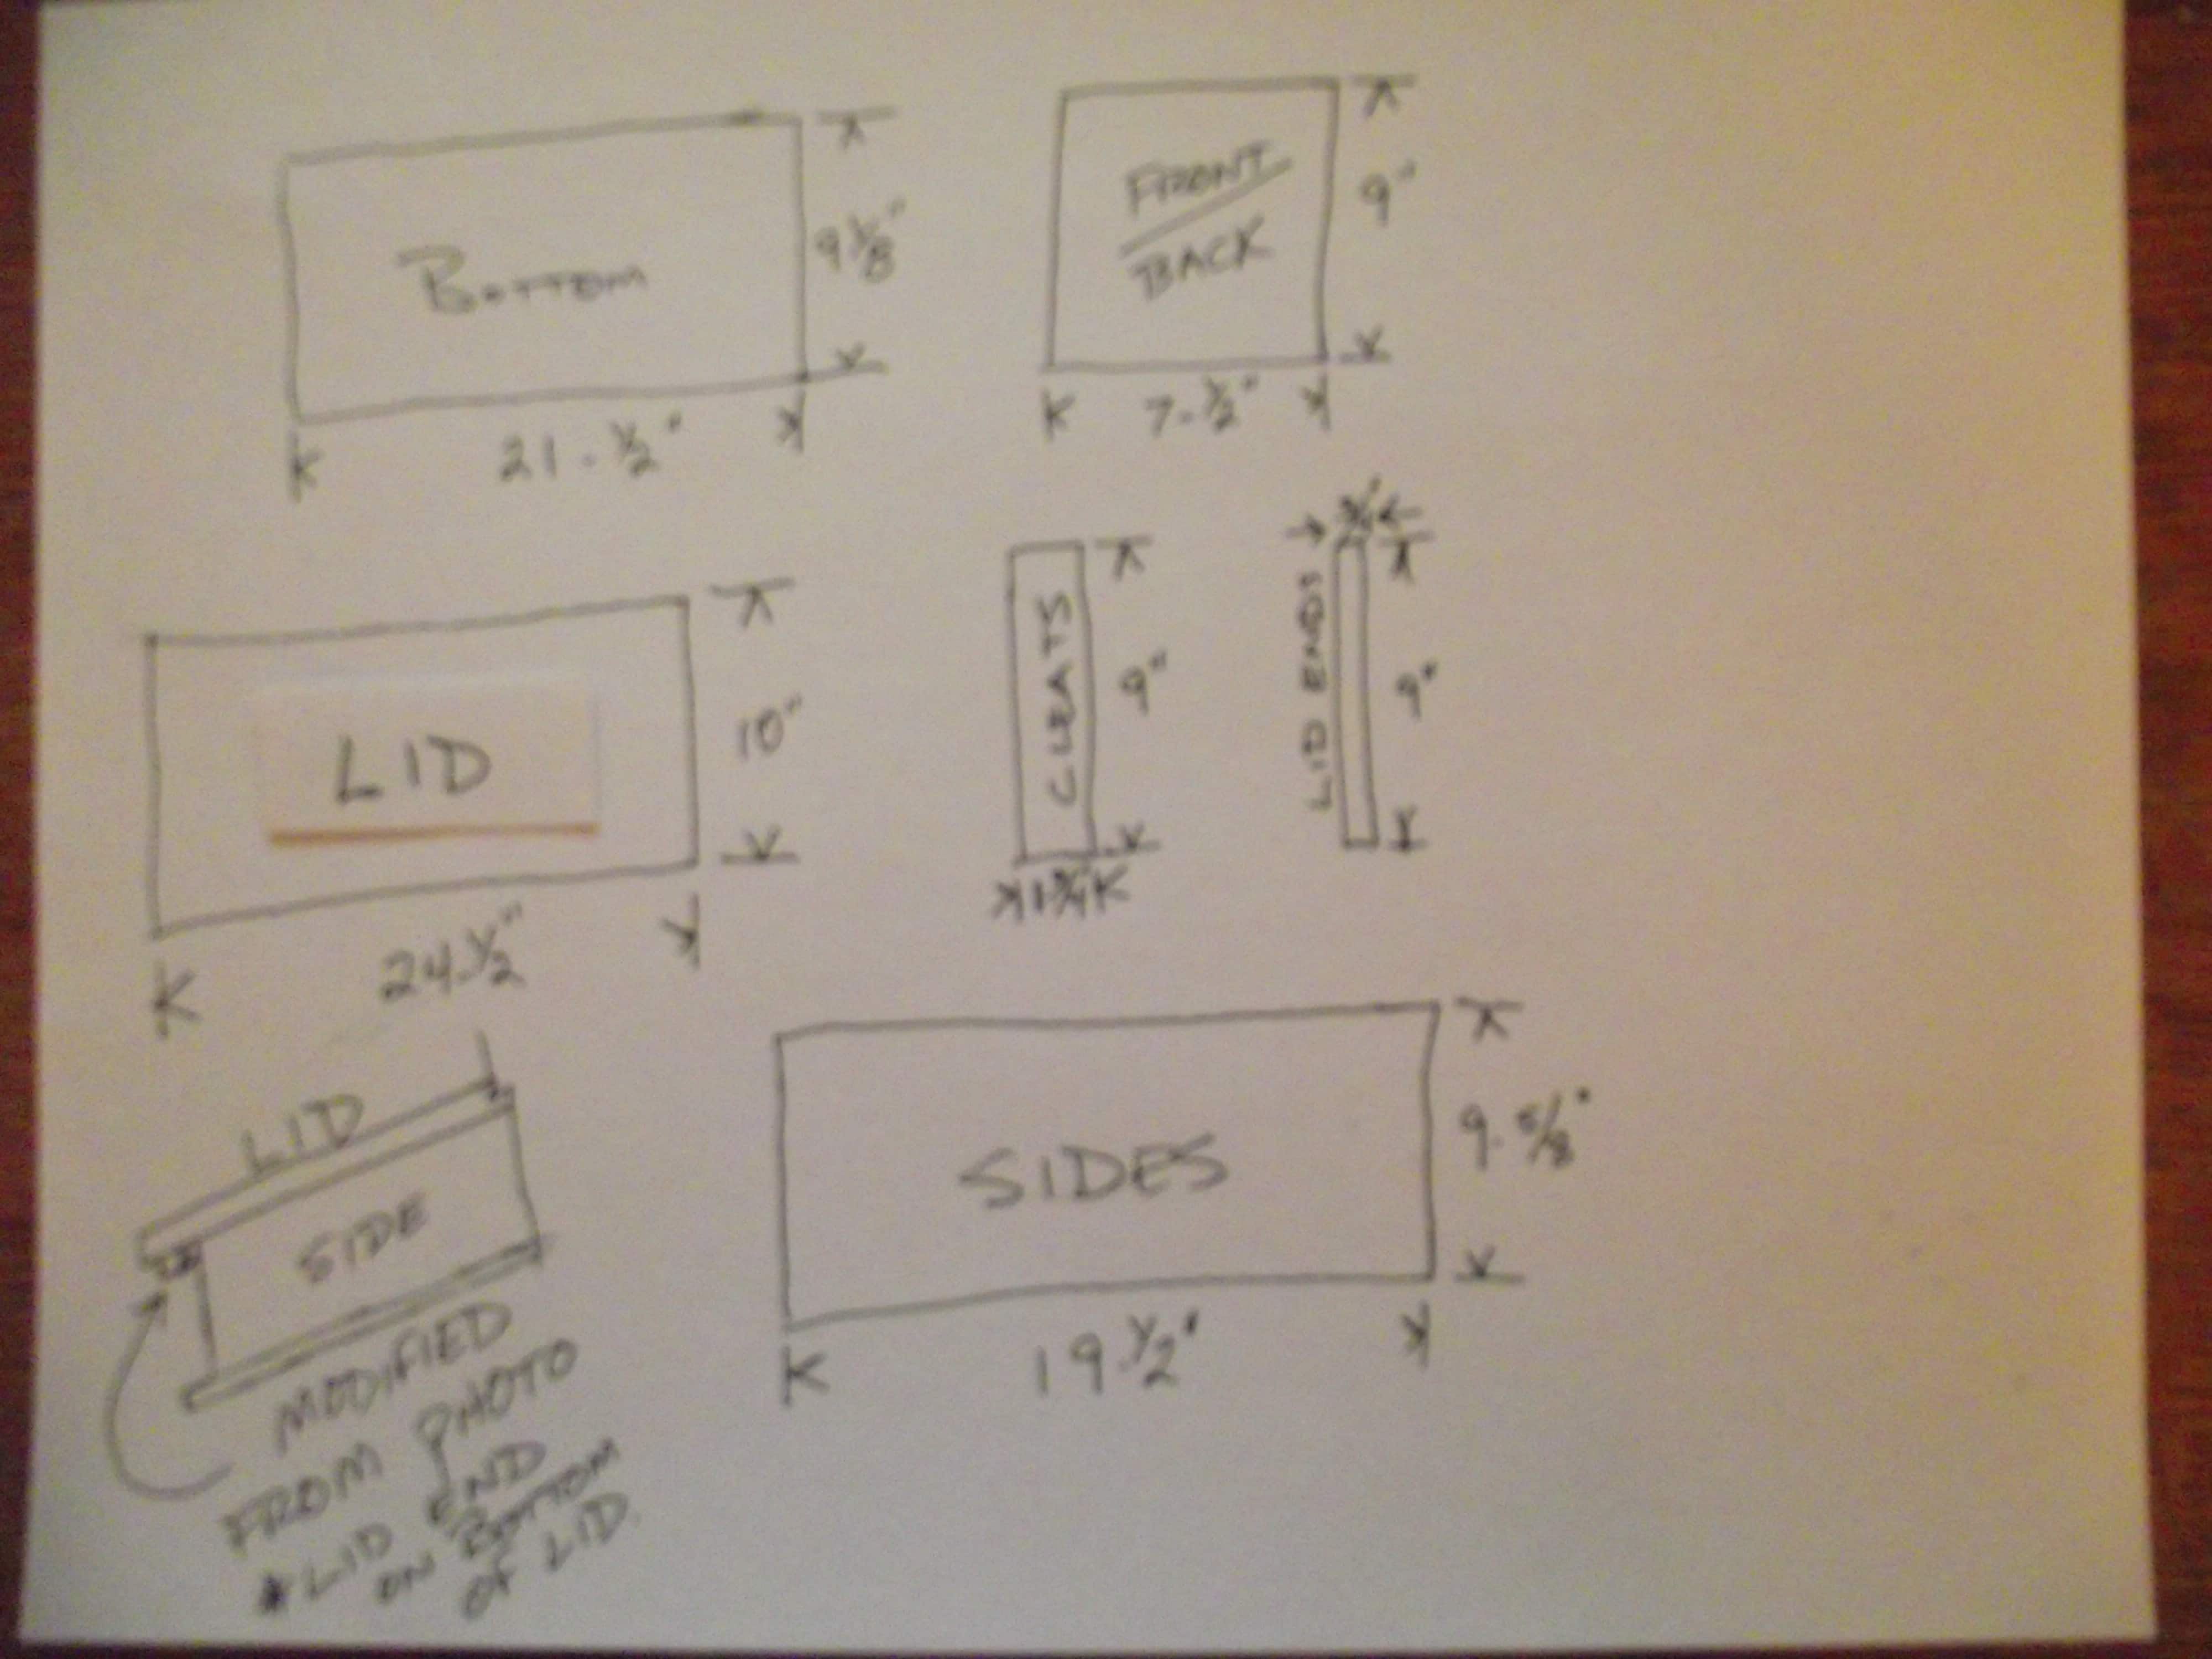 BOTTOM
9 1/8"
21-1/2"
FRONT/
BACK
9"
7-1/2"
LID
10"
24-1/2"
CLEATS
9"
1-3/4
LID ENDS
3/4"
9"
LID
SIDE
MODIFIED
FROM PHOTO
*LID END
ON BOTTOM
OF LID.
SIDES
9-5/8"
19 1/2"